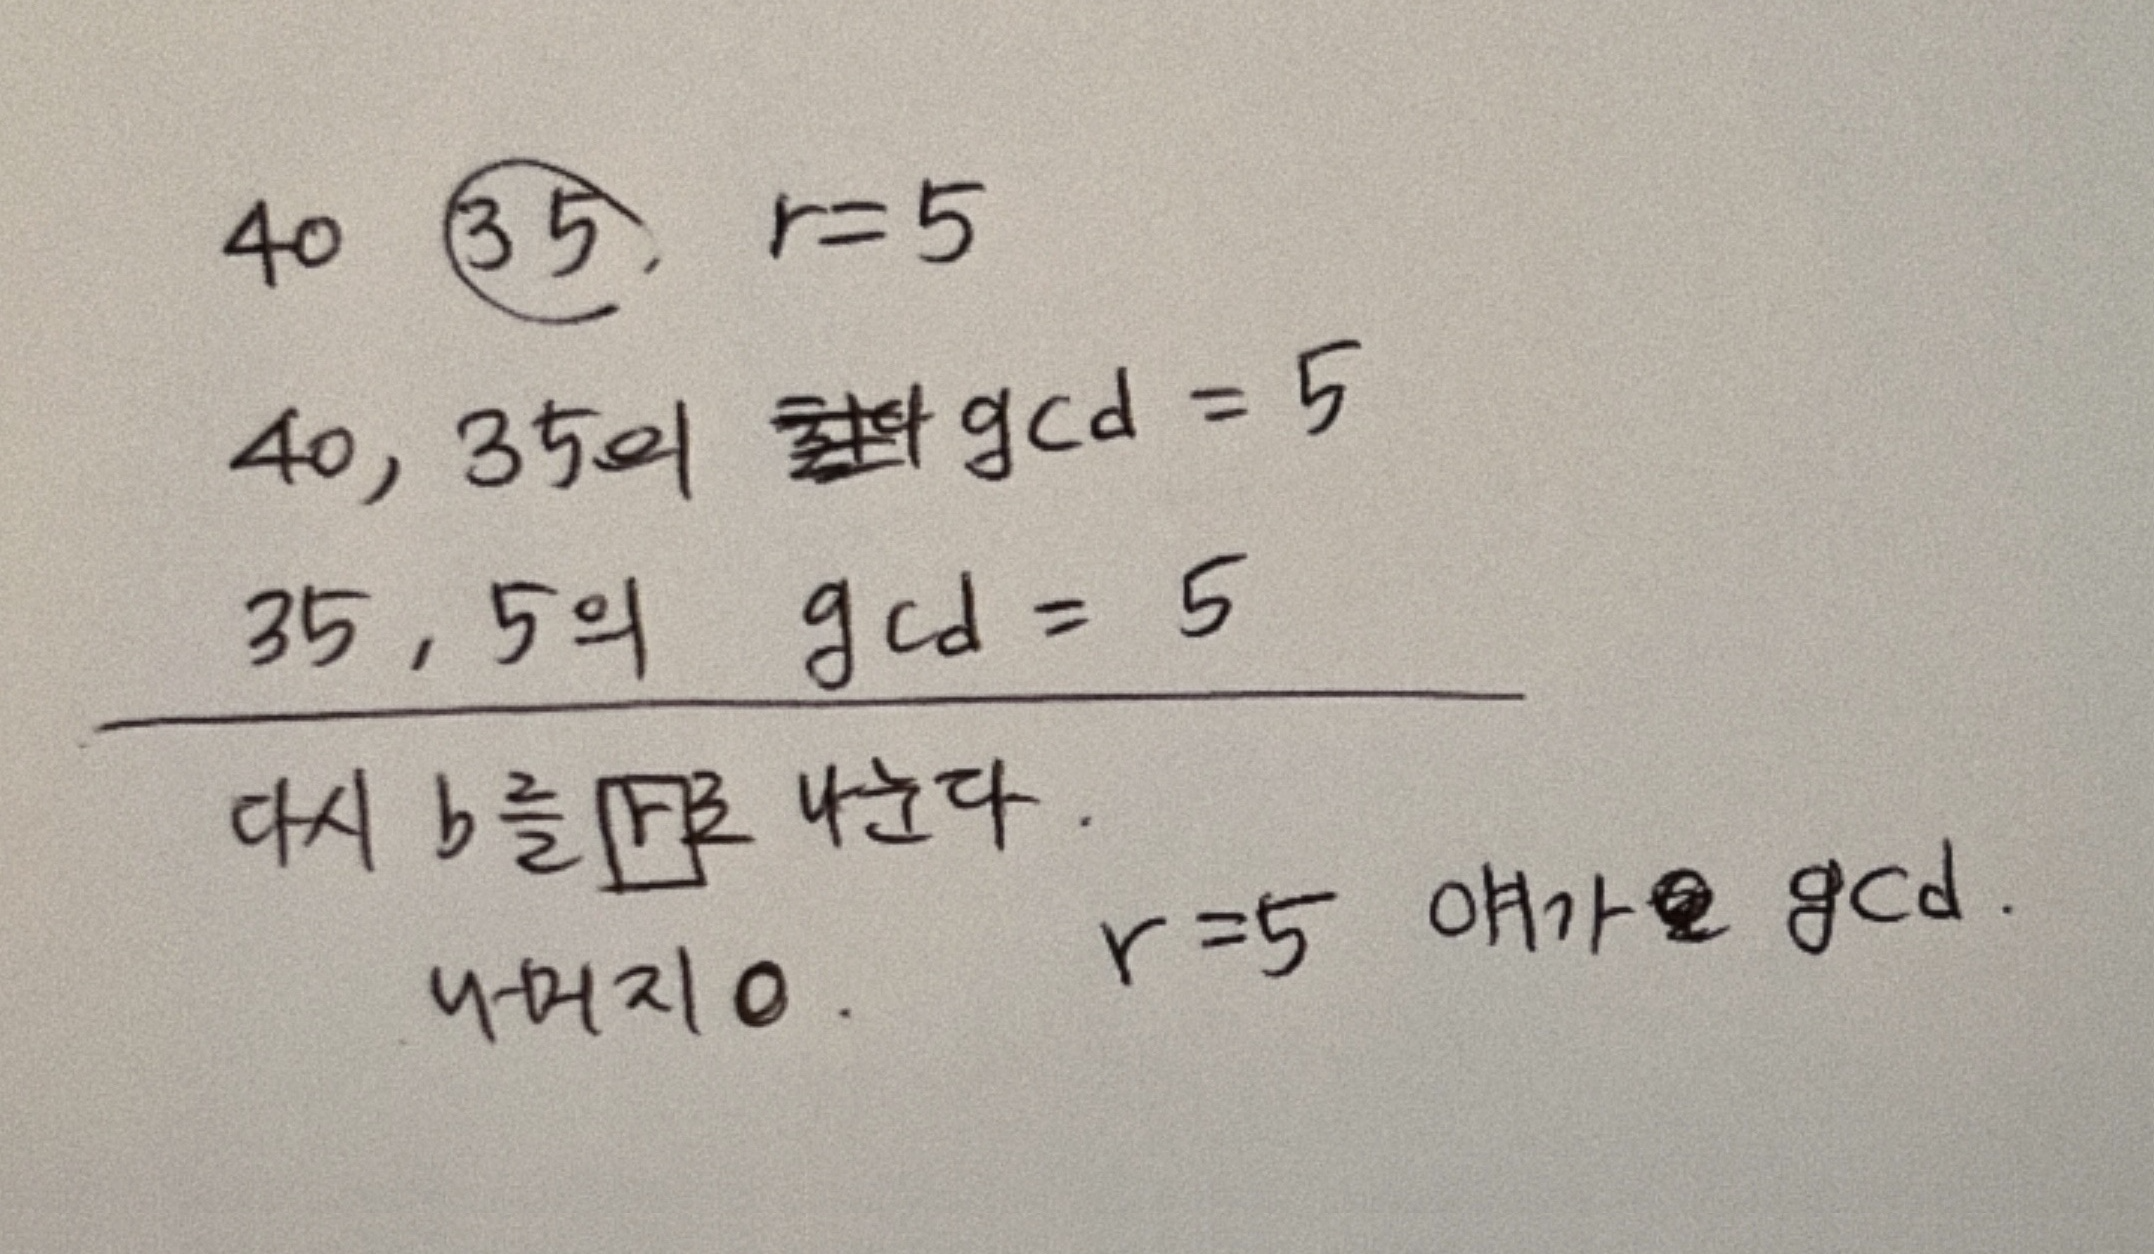 40 35, r=5
40, 35의 gcd = 5
35, 5의 gcd = 5
다시 b를 r로 나눈다.
나머지 0.
r=5 얘가 gcd.